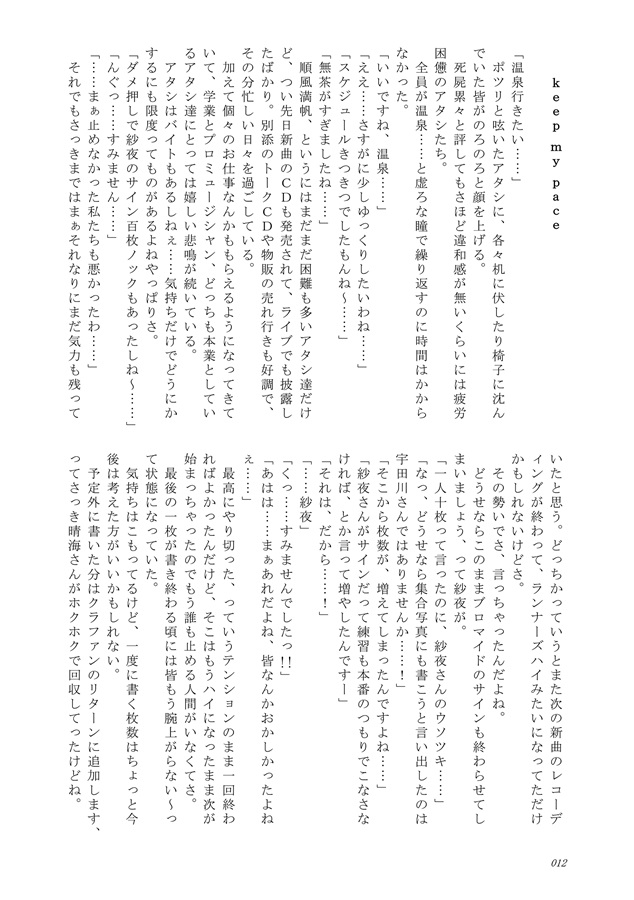 keep my pace
「温泉行きたい……」
ポツリと呟いたアタシに、各々机に伏したり椅子に沈ん
でいた皆がのろのろと顔を上げる。
死屍累々と評してもさほど違和感が無いくらいには疲労
困憊のアタシたち。
全員が温泉……と虚ろな瞳で繰り返すのに時間はかから
なかった。
「いいですね、温泉……」
「ええ……さすがに少しゆっくりしたいわね……」
「スケジュールきつきつでしたもんね〜……」
「無茶がすぎましたね……」
順風満帆、というにはまだまだ困難も多いアタシ達だけ
ど、つい先日新曲のCDも発売されて、ライブでも披露し
たばかり。別添のトークCDや物販の売れ行きも好調で、
その分忙しい日々を過ごしている。
加えて個々のお仕事なんかももらえるようになってきて
いて、学業とプロミュージシャン、どっちも本業としてい
るアタシ達にとっては嬉しい悲鳴が続いている。
アタシはバイトもあるしねぇ……気持ちだけでどうにか
するにも限度ってものがあるよねやっぱりさ。
「ダメ押しで紗夜のサイン百枚ノックもあったしね〜……」
「んぐっ……すみません……」
「……まぁ止めなかった私たちも悪かったわ……」
それでもさっきまではまぁそれなりにまだ気力も残って
いたと思う。どっちかっていうとまた次の新曲のレコーデ
ィングが終わって、ランナーズハイみたいになってただけ
かもしれないけどさ。
その勢いでさ、言っちゃったんだよね。
どうせならこのままブロマイドのサインも終わらせてし
まいましょう、って紗夜が。
「一人十枚って言ったのに、紗夜さんのウソツキ……」
「なっ、どうせなら集合写真にも書こうと言い出したのは
宇田川さんではありませんか……！」
「そこから枚数が、増えてしまったんですよね……」
「紗夜さんがサインだって練習も本番のつもりでこなさな
ければ、とか言って増やしたんですー」
「それは、だから……！」
「……紗夜」
「くっ……すみませんでしたっ!!」
「あはは……まぁあれだよね、皆なんかおかしかったよね
ぇ……」
最高にやり切った、っていうテンションのまま一回終わ
ればよかったんだけど、そこはもうハイになったまま次が
始まっちゃったのでもう誰も止める人間がいなくてさ。
最後の一枚が書き終わる頃には皆もう腕上がらない〜っ
て状態になっていた。
気持ちはこもってるけど、一度に書く枚数はちょっと今
後は考えた方がいいかもしれない。
予定外に書いた分はクラファンのリターンに追加します、
ってさっき晴海さんがホクホクで回収してったけどね。
012